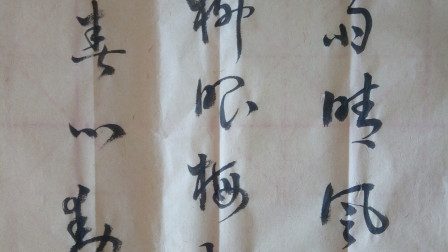 雨晴风
柳眼梅
春心動